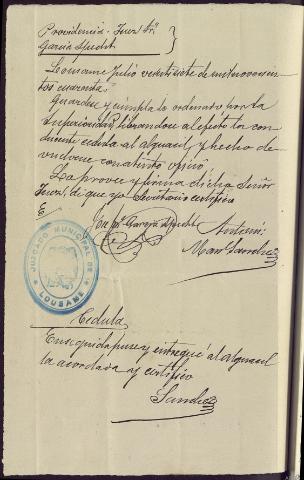 Providencia - Juez Sr.
García Specht
Lousame Julio veintisiete de mil novecien-
tos cuarenta.
Guardese y cumplase lo ordenado por la
Superioridad, librandose al efecto la con-
ducente cedula al alguacil, y hecho de-
vuelvase con atento oficio
Lo proveyo y firma dicho señor
Juez, de que yo Secretario certifico
García Specht
Antemi:
Man Sanchez
JUZGADO MUNICIPAL DE
LOUSAME
Cedula
Enseguida puse y entregué al alguacil
la acordada y certifico
Sanchez